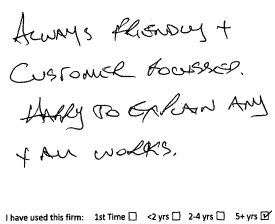 Always friendly +
customer focussed.
Happy to explain any
+ all works.
I have used this firm: 1st Time ☐ <2 yrs ☐ 2-4 yrs ☐ 5+ yrs ☑